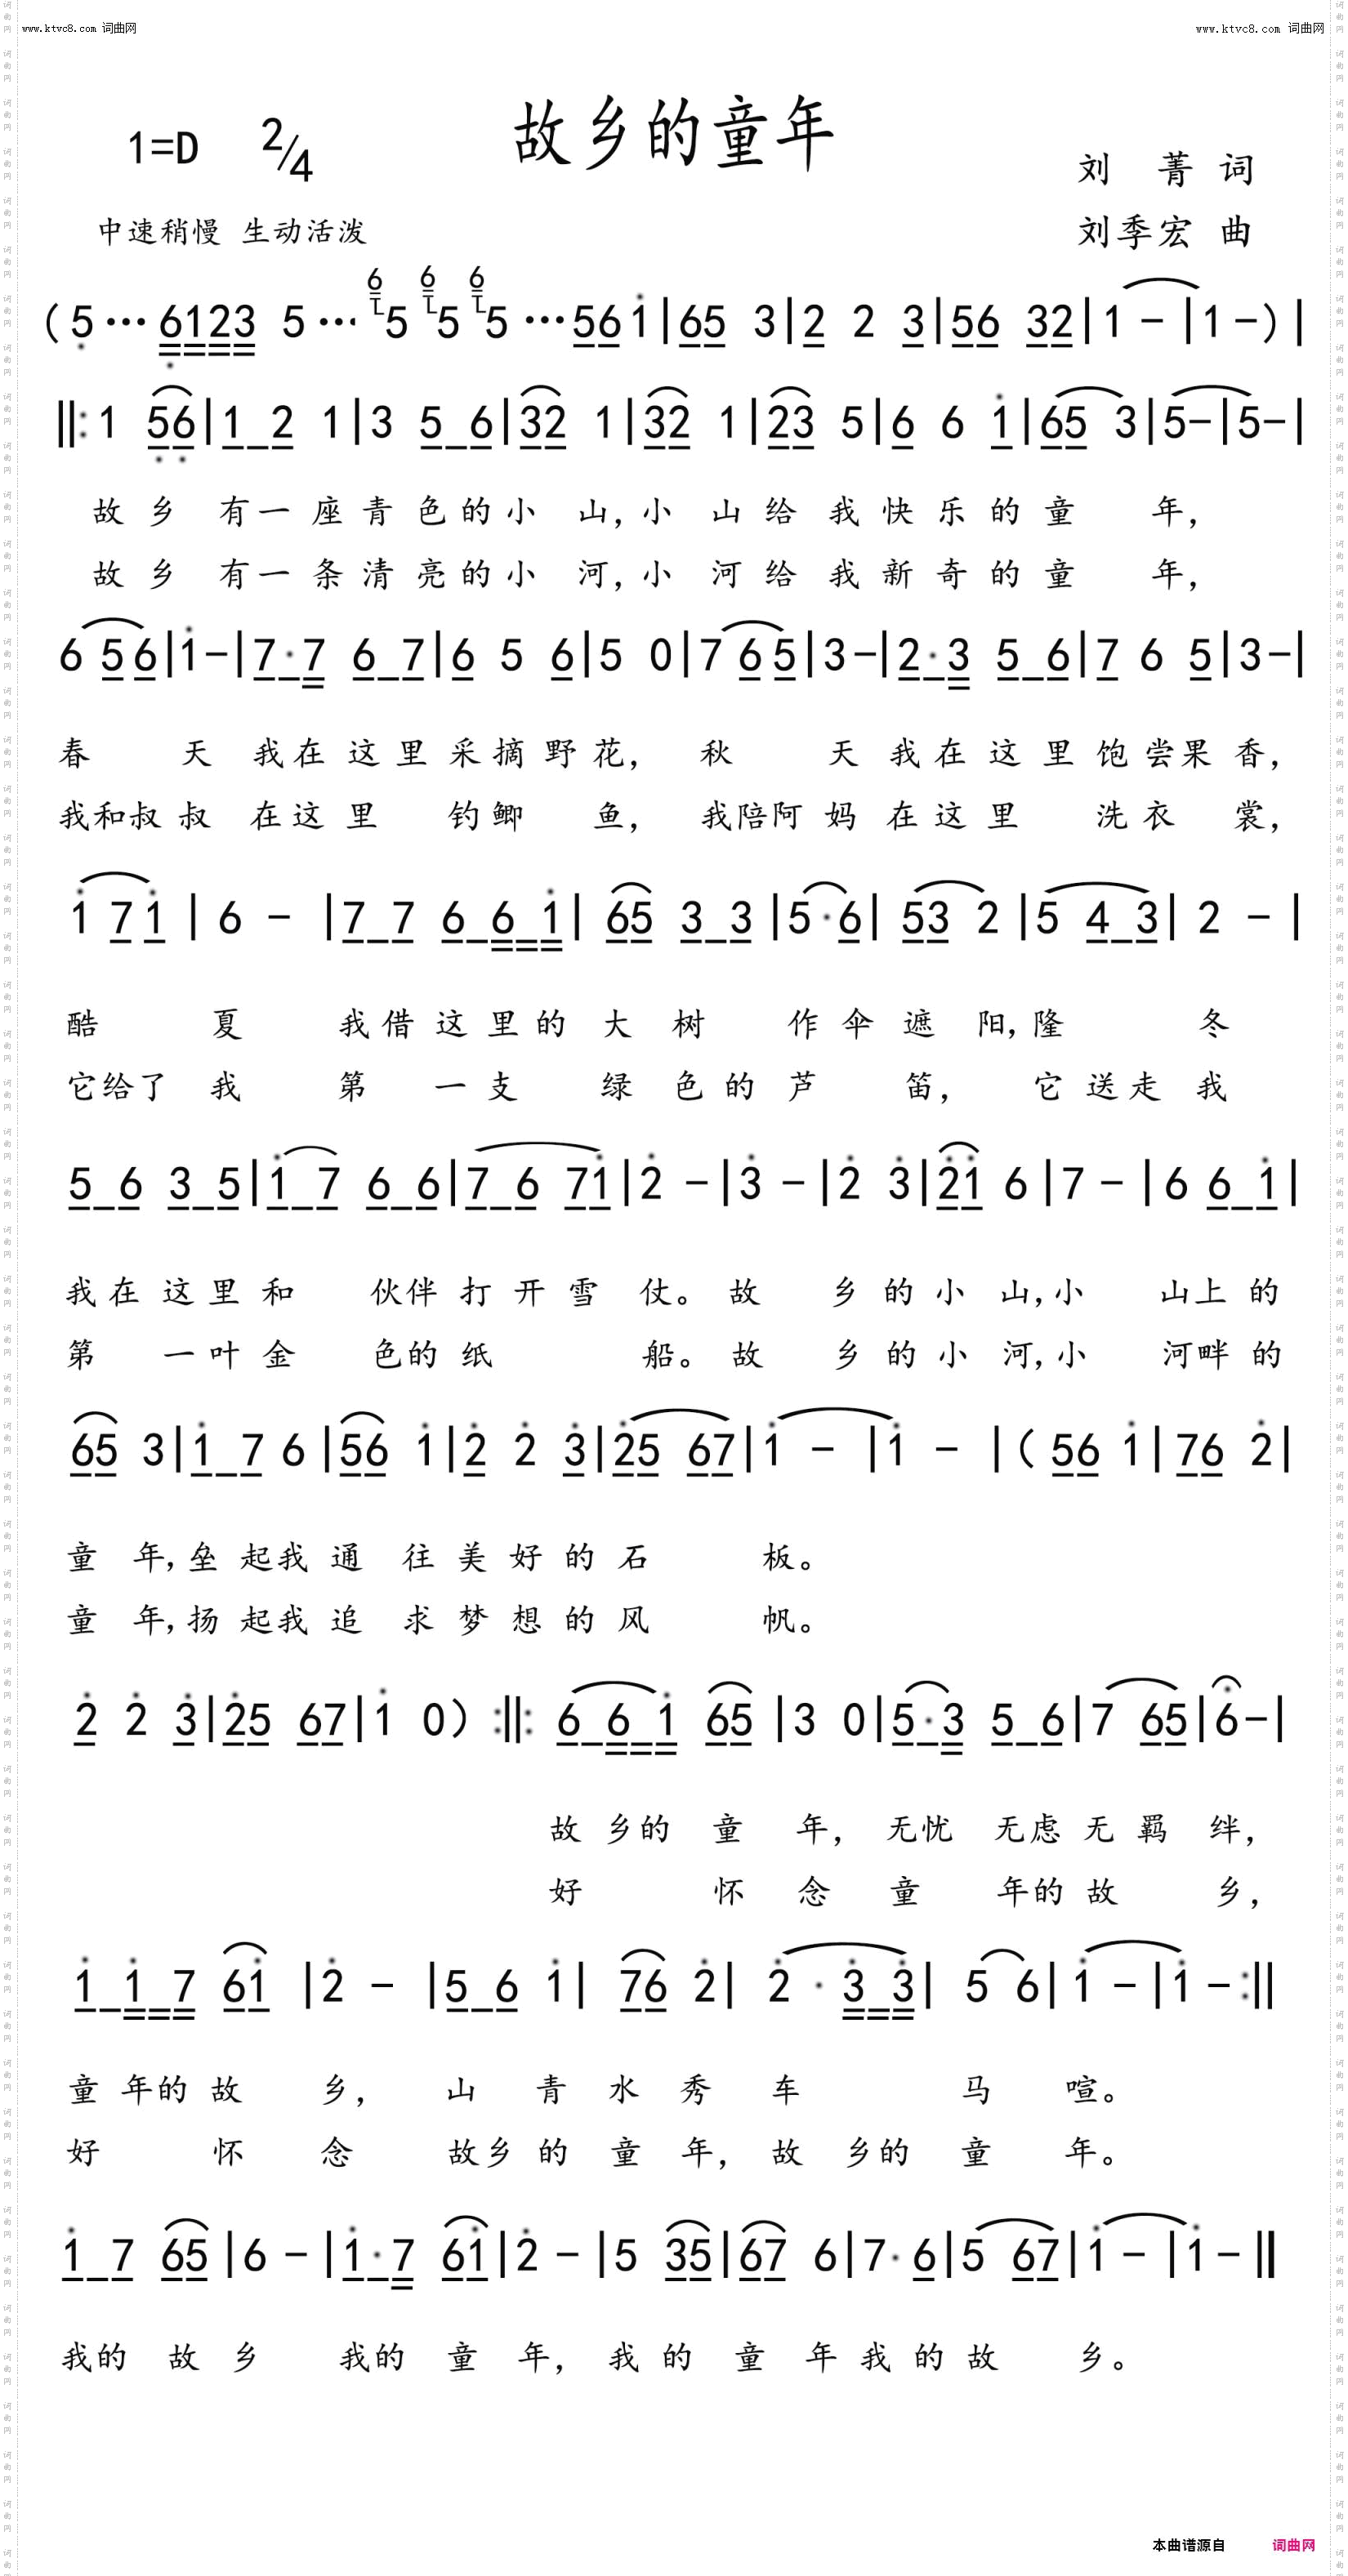 www.ktvc8.com 词曲网
www.ktvc8.com 词曲网
故乡的童年
1=D 2/4
刘 菁 词
中速稍慢 生动活泼
刘季宏 曲
(5̣ ··· 6̣123 5 ··· 6 5 6 5 6 5 ··· 56 1̇ | 65 3 | 2 2 3 | 56 32 | 1 - | 1 - ) |
‖: 1 5̣6̣ | 1 2 1 | 3 5 6 | 32 1 | 32 1 | 23 5 | 6 6 1̇ | 65 3 | 5 - | 5 - |
故乡有一座青色的小山,小山给我快乐的童年,
故乡有一条清亮的小河,小河给我新奇的童年,
6 56 | 1̇ - | 7·7 6 7 | 6 5 6 | 5 0 | 7 65 | 3 - | 2·3 5 6 | 7 6 5 | 3 - |
春天我在这里采摘野花,秋天我在这里饱尝果香,
我和叔叔在这里钓鲫鱼,我陪阿妈在这里洗衣裳,
1̇ 71̇ | 6 - | 7 7 6 6 1̇ | 65 3 3 | 5·6 | 53 2 | 5 4 3 | 2 - |
酷夏我借这里的大树作伞遮阳,隆冬
它给了我第一支绿色的芦笛,它送走我
5 6 3 5 | 1̇ 7 6 6 | 7 6 71̇ | 2̇ - | 3̇ - | 2̇ 3̇ | 2̇1̇ 6 | 7 - | 6 6 1̇ |
我在这里和伙伴打开雪仗。故乡的小山,小山上的
第一叶金色的纸船。故乡的小河,小河畔的
65 3 | 1̇ 7 6 | 56 1̇ | 2̇ 2̇ 3̇ | 2̇5 67 | 1̇ - | 1̇ - | ( 56 1̇ | 76 2̇ |
童年,垒起我通往美好的石板。
童年,扬起我追求梦想的风帆。
2̇ 2̇ 3̇ | 2̇5 67 | 1̇ 0 ) :‖: 6 6 1̇ 65 | 3 0 | 5·3 5 6 | 7 65 | 6 - |
故乡的童年,无忧无虑无羁绊,
好怀念童年的故乡,
1̇ 1̇ 7 61̇ | 2̇ - | 5 6 1̇ | 76 2̇ | 2̇ · 3̇ 3̇ | 5 6 | 1̇ - | 1̇ - :‖
童年的故乡,山青水秀车马喧。
好怀念故乡的童年,故乡的童年。
1̇ 7 65 | 6 - | 1̇·7 61̇ | 2̇ - | 5 35 | 67 6 | 7·6 | 5 67 | 1̇ - | 1̇ - ‖
我的故乡我的童年,我的童年我的故乡。
本曲谱源自 词曲网